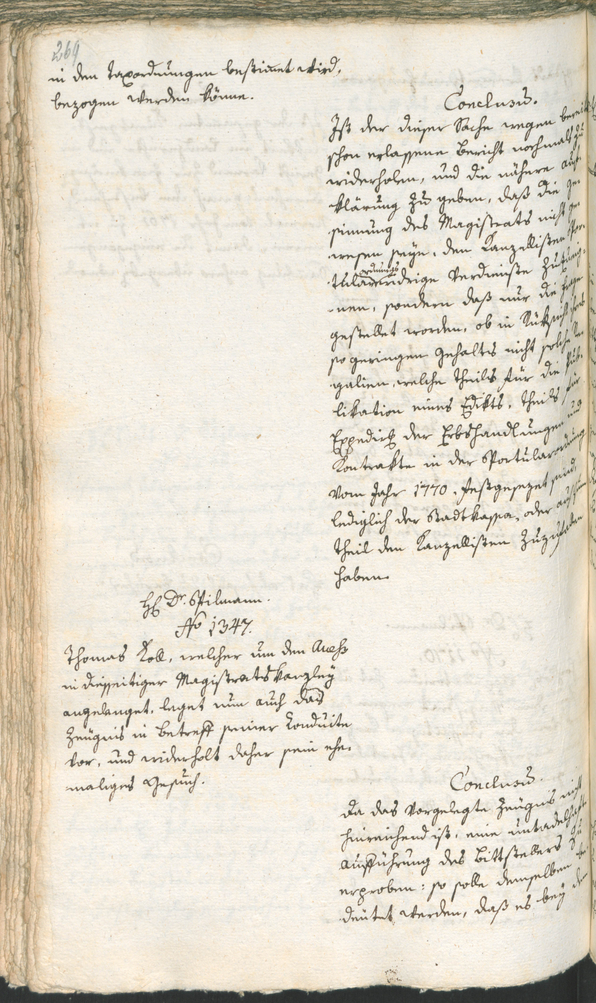 269
in den Taxordnungen bestimet wird,
bezogen werden könne.
Conclusum.
Ist der dieser Sache wegen bereits
schon erlassene Bericht nochmals zu
widerholen, und die nähere auf-
klärung zu geben, daß die Ge-
sinnung des Magistrats nicht ge-
wesen seye, den Kanzellisten
ordnungs
widrige Verdienste zuzueig-
nen, sondern daß nur die Frage
gestellet worden, ob in Rücksicht
so geringen Gehalts nicht solche
galien, welche theils für die Pub-
likation eines Edikts, theils für
Expedit der Erbshandlungen und
Kontrakte in der Sportulordnung
vom Jahr 1770. festgesezet sind,
lediglich der Stadtkassa, oder
theil den Kanzellisten zuzu
haben.
H. Dr. Spilmann.
No 1347.
Thomas Koll, welcher um den Access
in diesseitiger Magistratskanzley
angelanget, leget nun auch das
Zeugnis in Betreff seiner Konduite
vor, und widerholt daher sein ehe-
maliges Gesuch.
Conclusum.
Da das vorgelegte Zeugnis nicht
hinreichend ist, eine untadelhafte
aufführung des Bittstellers zu
erproben: so solle demselben be-
deutet werden, daß es bey der